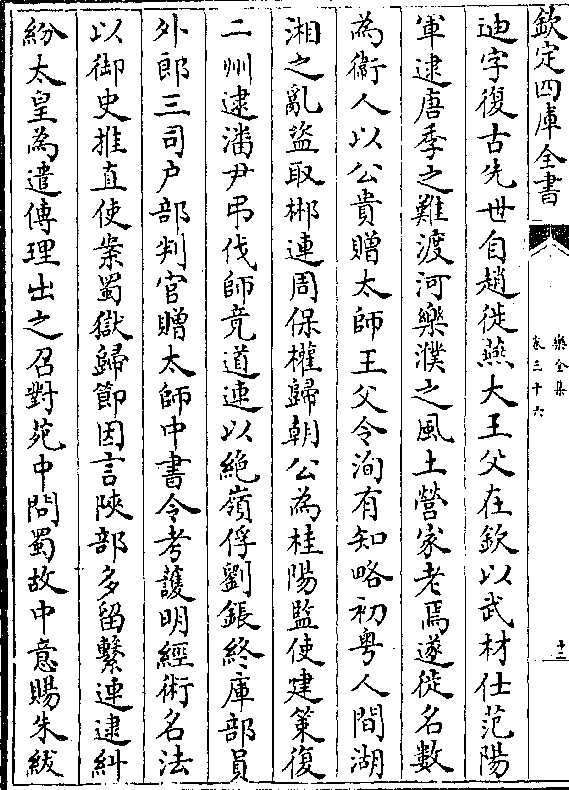 欽定四庫全書
樂全集
卷三十六
十二
迪字復古先世自趙徙燕大王父在欽以武材仕范陽
軍逮唐季之難渡河樂濮之風土營家老焉遂徙名數
為衞人以公貴贈太師王父令洵有知略初粤人間湖
湘之亂盜取郴連周保權歸朝公為桂陽監使建策復
二州逮潘尹弔伐師竟道連以絶嶺俘劉鋹終庫部員
外郎三司户部判官贈太師中書令考護明經術名法
以御史推直使案蜀獄歸節因言陜部多留繫連逮糾
紛太皇為遣傳理出之召對苑中問蜀故中意賜朱紱